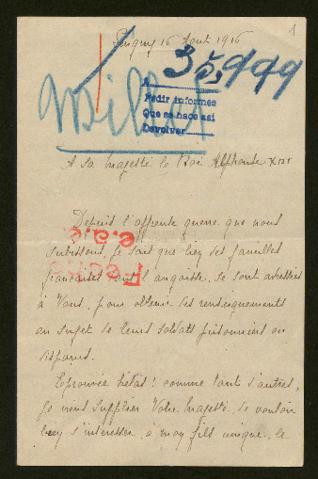 1
16 Aout 1916
35,999
Pedir informes
Que se hace asi
Devolver
A Sa Majesté le Roi Alphonse XIII
Depuis l'affreuse guerre que nous
subissons, je sais que bien des familles
françaises dans l'angoisse, se sont adressées
à Vous, pour obtenir des renseignements
au sujet de leurs soldats prisonniers ou
disparus.
Eprouvée hélas! comme tant d'autres,
je viens supplier Votre Majesté, de vouloir
bien s'intéresser, à mon fils unique, le